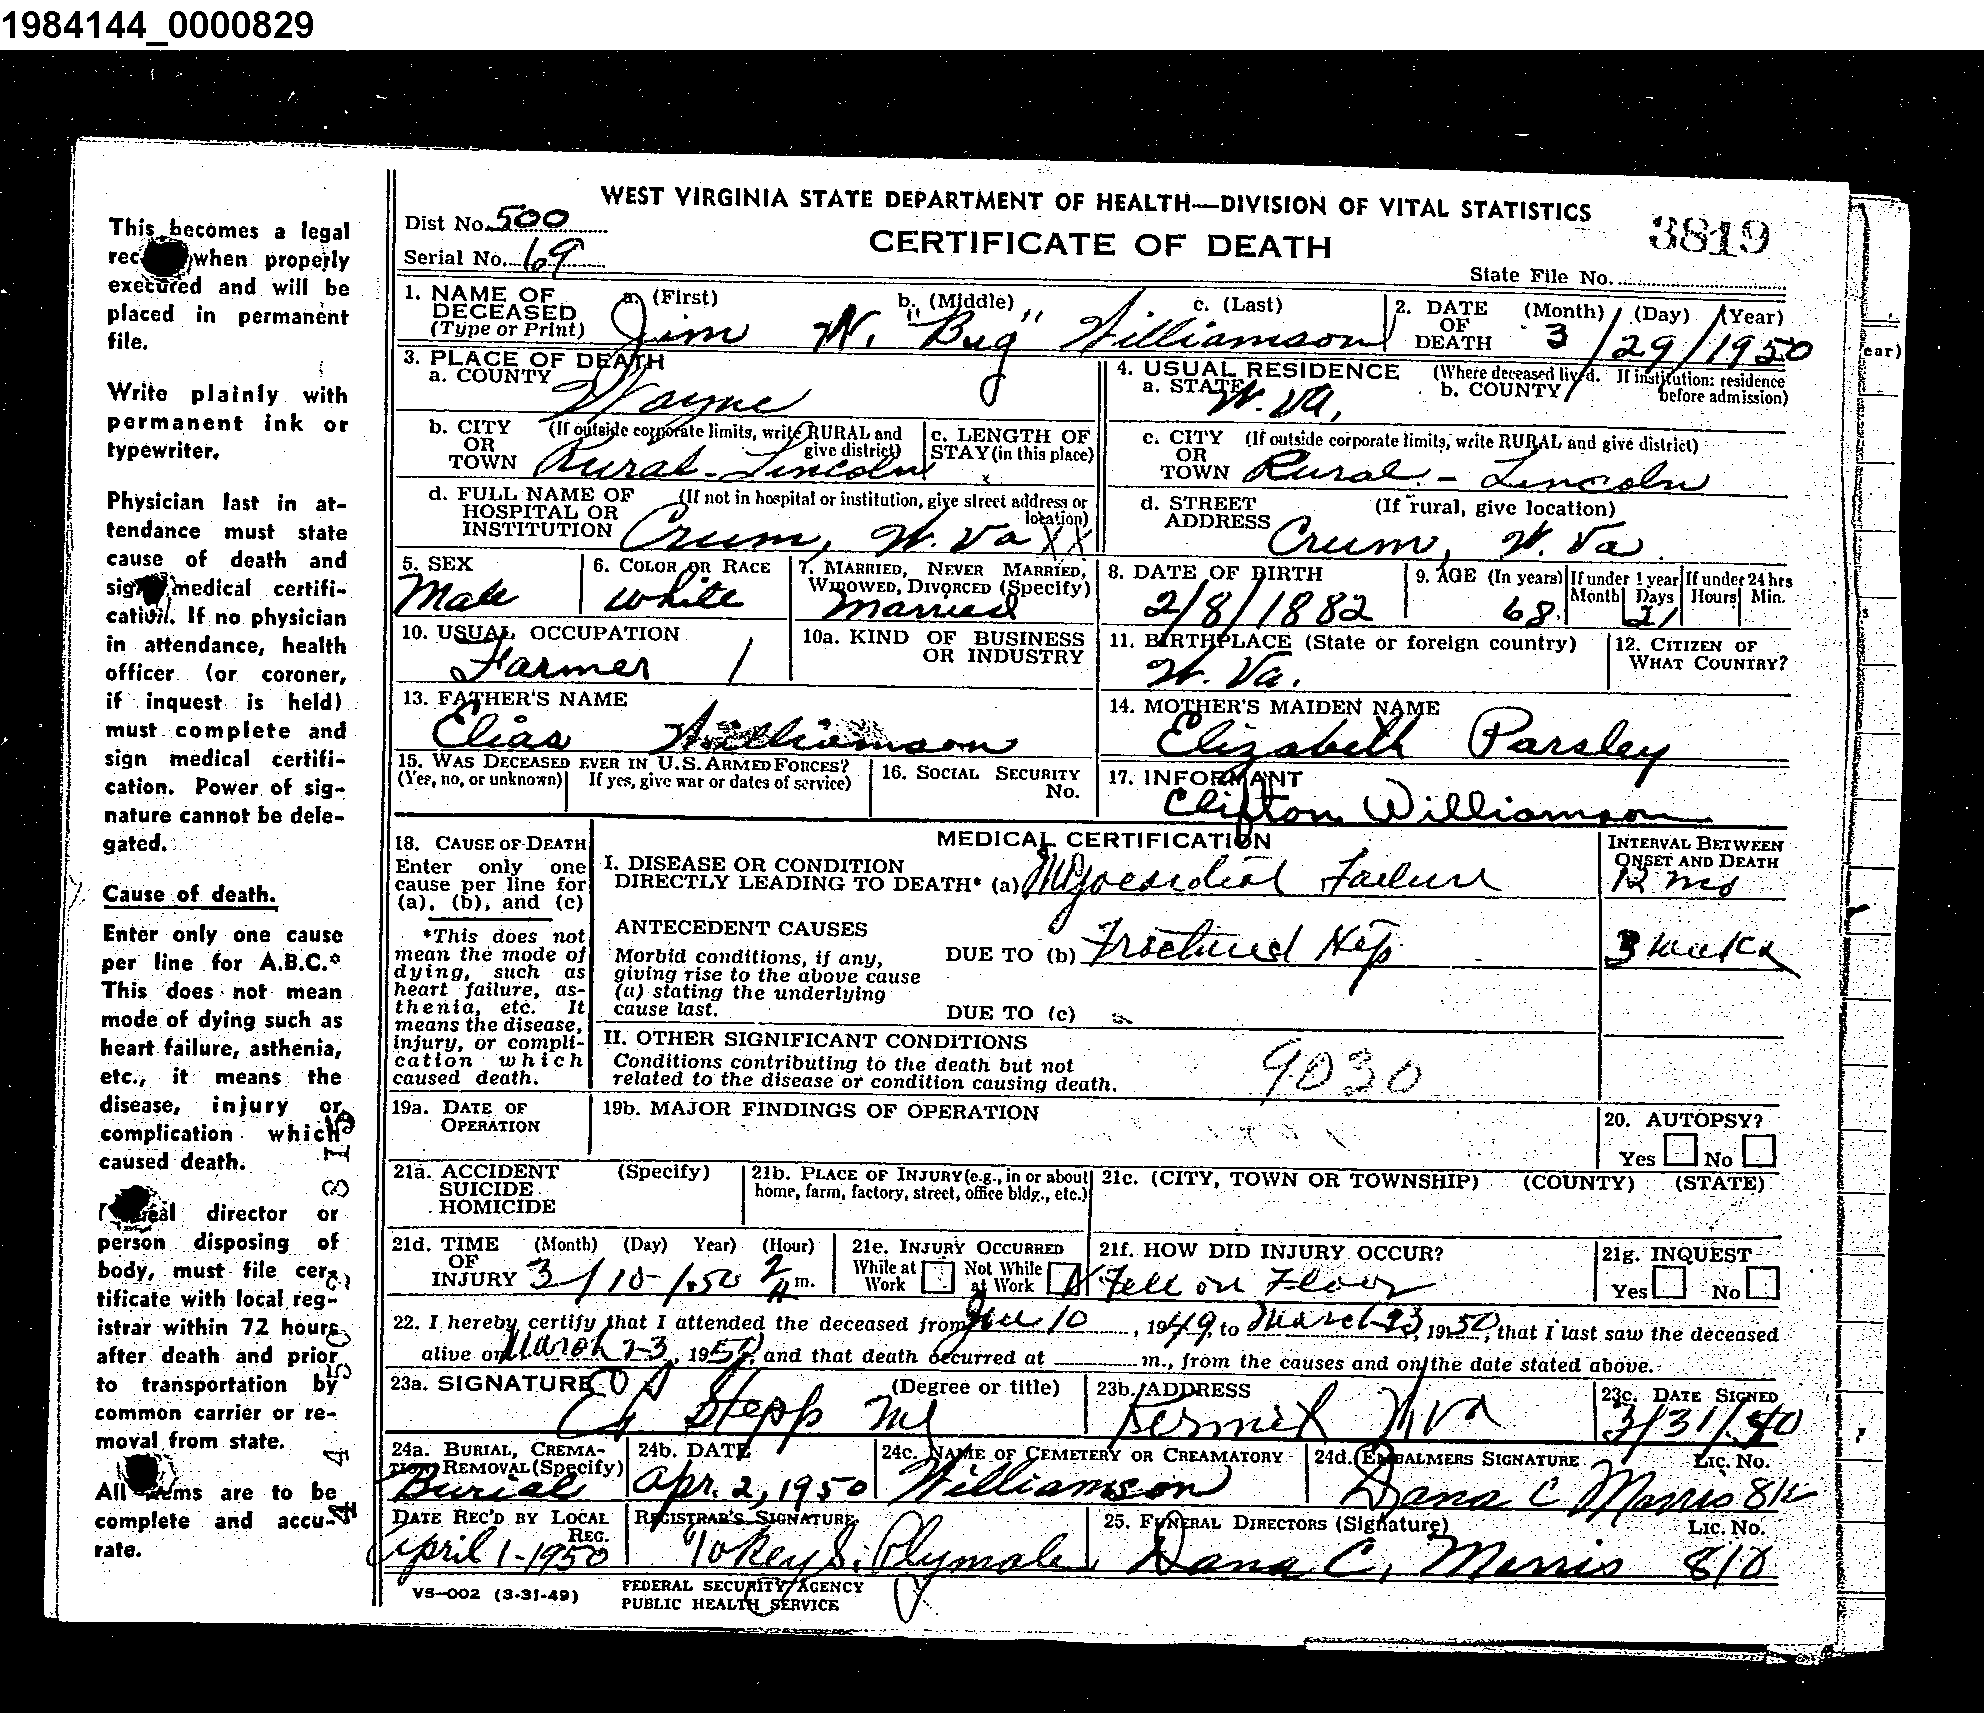 1984144_0000829
WEST VIRGINIA STATE DEPARTMENT OF HEALTH—DIVISION OF VITAL STATISTICS
Dist No. 500
CERTIFICATE OF DEATH
3819
Serial No. 69
State File No.
This becomes a legal
when properly
executed and will be
placed in permanent
file.
Write plainly with
permanent ink or
typewriter.
Physician last in at-
tendance must state
cause of death and
sign medical certifi-
cation. If no physician
in attendance, health
officer (or coroner,
if inquest is held)
must complete and
sign medical certifi-
cation. Power of sig-
nature cannot be dele-
gated.
Cause of death.
Enter only one cause
per line for A.B.C.*
This does not mean
mode of dying such as
heart failure, asthenia,
etc., it means the
disease, injury or
complication which
caused death.
director or
person disposing of
body, must file cer-
tificate with local reg-
istrar within 72 hours
after death and prior
to transportation by
common carrier or re-
moval from state.
All items are to be
complete and accu-
rate.
1. NAME OF DECEASED (Type or Print)
a. (First) b. (Middle) c. (Last)
Jim W. "Bug" Williamson
2. DATE OF DEATH (Month) (Day) (Year)
3/29/1950
3. PLACE OF DEATH
a. COUNTY Wayne
4. USUAL RESIDENCE (Where deceased lived. If institution: residence before admission)
a. STATE W. Va. b. COUNTY
b. CITY OR TOWN (If outside corporate limits, write RURAL and give district)
Rural - Lincoln
c. LENGTH OF STAY (in this place)
c. CITY OR TOWN (If outside corporate limits, write RURAL and give district)
Rural - Lincoln
d. FULL NAME OF HOSPITAL OR INSTITUTION (If not in hospital or institution, give street address or location)
Crum, W. Va XX
d. STREET ADDRESS (If rural, give location)
Crum, W. Va.
5. SEX Male
6. COLOR OR RACE white
7. MARRIED, NEVER MARRIED, WIDOWED, DIVORCED (Specify) Married
8. DATE OF BIRTH 2/8/1882
9. AGE (In years) 68
If under 1 year Month Days 1 21
If under 24 hrs Hours Min.
10. USUAL OCCUPATION Farmer 1
10a. KIND OF BUSINESS OR INDUSTRY
11. BIRTHPLACE (State or foreign country) W. Va.
12. CITIZEN OF WHAT COUNTRY?
13. FATHER'S NAME Elias Williamson
14. MOTHER'S MAIDEN NAME Elizabeth Parsley
15. WAS DECEASED EVER IN U.S. ARMED FORCES?
(Yes, no, or unknown) If yes, give war or dates of service)
16. SOCIAL SECURITY No.
17. INFORMANT Clifton Williamson
18. CAUSE OF DEATH
Enter only one
cause per line for
(a), (b), and (c)
*This does not
mean the mode of
dying, such as
heart failure, as-
thenia, etc. It
means the disease,
injury, or compli-
cation which
caused death.
MEDICAL CERTIFICATION
INTERVAL BETWEEN ONSET AND DEATH
I. DISEASE OR CONDITION
DIRECTLY LEADING TO DEATH* (a) Myocardial Failure 12 mos
ANTECEDENT CAUSES
Morbid conditions, if any,
giving rise to the above cause
(a) stating the underlying
cause last.
DUE TO (b) Fractured Hip 3 weeks
DUE TO (c)
II. OTHER SIGNIFICANT CONDITIONS
Conditions contributing to the death but not
related to the disease or condition causing death.
9030
19a. DATE OF OPERATION
19b. MAJOR FINDINGS OF OPERATION
20. AUTOPSY?
Yes No
21a. ACCIDENT SUICIDE HOMICIDE (Specify)
21b. PLACE OF INJURY (e.g., in or about home, farm, factory, street, office bldg., etc.)
21c. (CITY, TOWN OR TOWNSHIP) (COUNTY) (STATE)
21d. TIME OF INJURY (Month) (Day) Year) (Hour)
3/10-1950 2 A m.
21e. INJURY OCCURRED
While at Work Not While at Work X
21f. HOW DID INJURY OCCUR?
Fell on Floor
21g. INQUEST
Yes No
22. I hereby certify that I attended the deceased from 10, 1949, to March 23, 1950, that I last saw the deceased
alive on March 23, 1950, and that death occurred at m., from the causes and on the date stated above.
23a. SIGNATURE (Degree or title) Stepp MD
23b. ADDRESS Kermit W Va
23c. DATE SIGNED 3/31/50
24a. BURIAL, CREMATION REMOVAL (Specify) Burial
24b. DATE Apr. 2, 1950
24c. NAME OF CEMETERY OR CREAMATORY Williamson
24d. EMBALMERS SIGNATURE Lic. No.
Dana C Morris
DATE REC'D BY LOCAL REG. April 1-1950
REGISTRAR'S SIGNATURE Tokey S. Plymale
25. FUNERAL DIRECTORS (Signature) Lic. No.
Dana C. Morris 810
VS—002 (3-31-49)
FEDERAL SECURITY AGENCY
PUBLIC HEALTH SERVICE